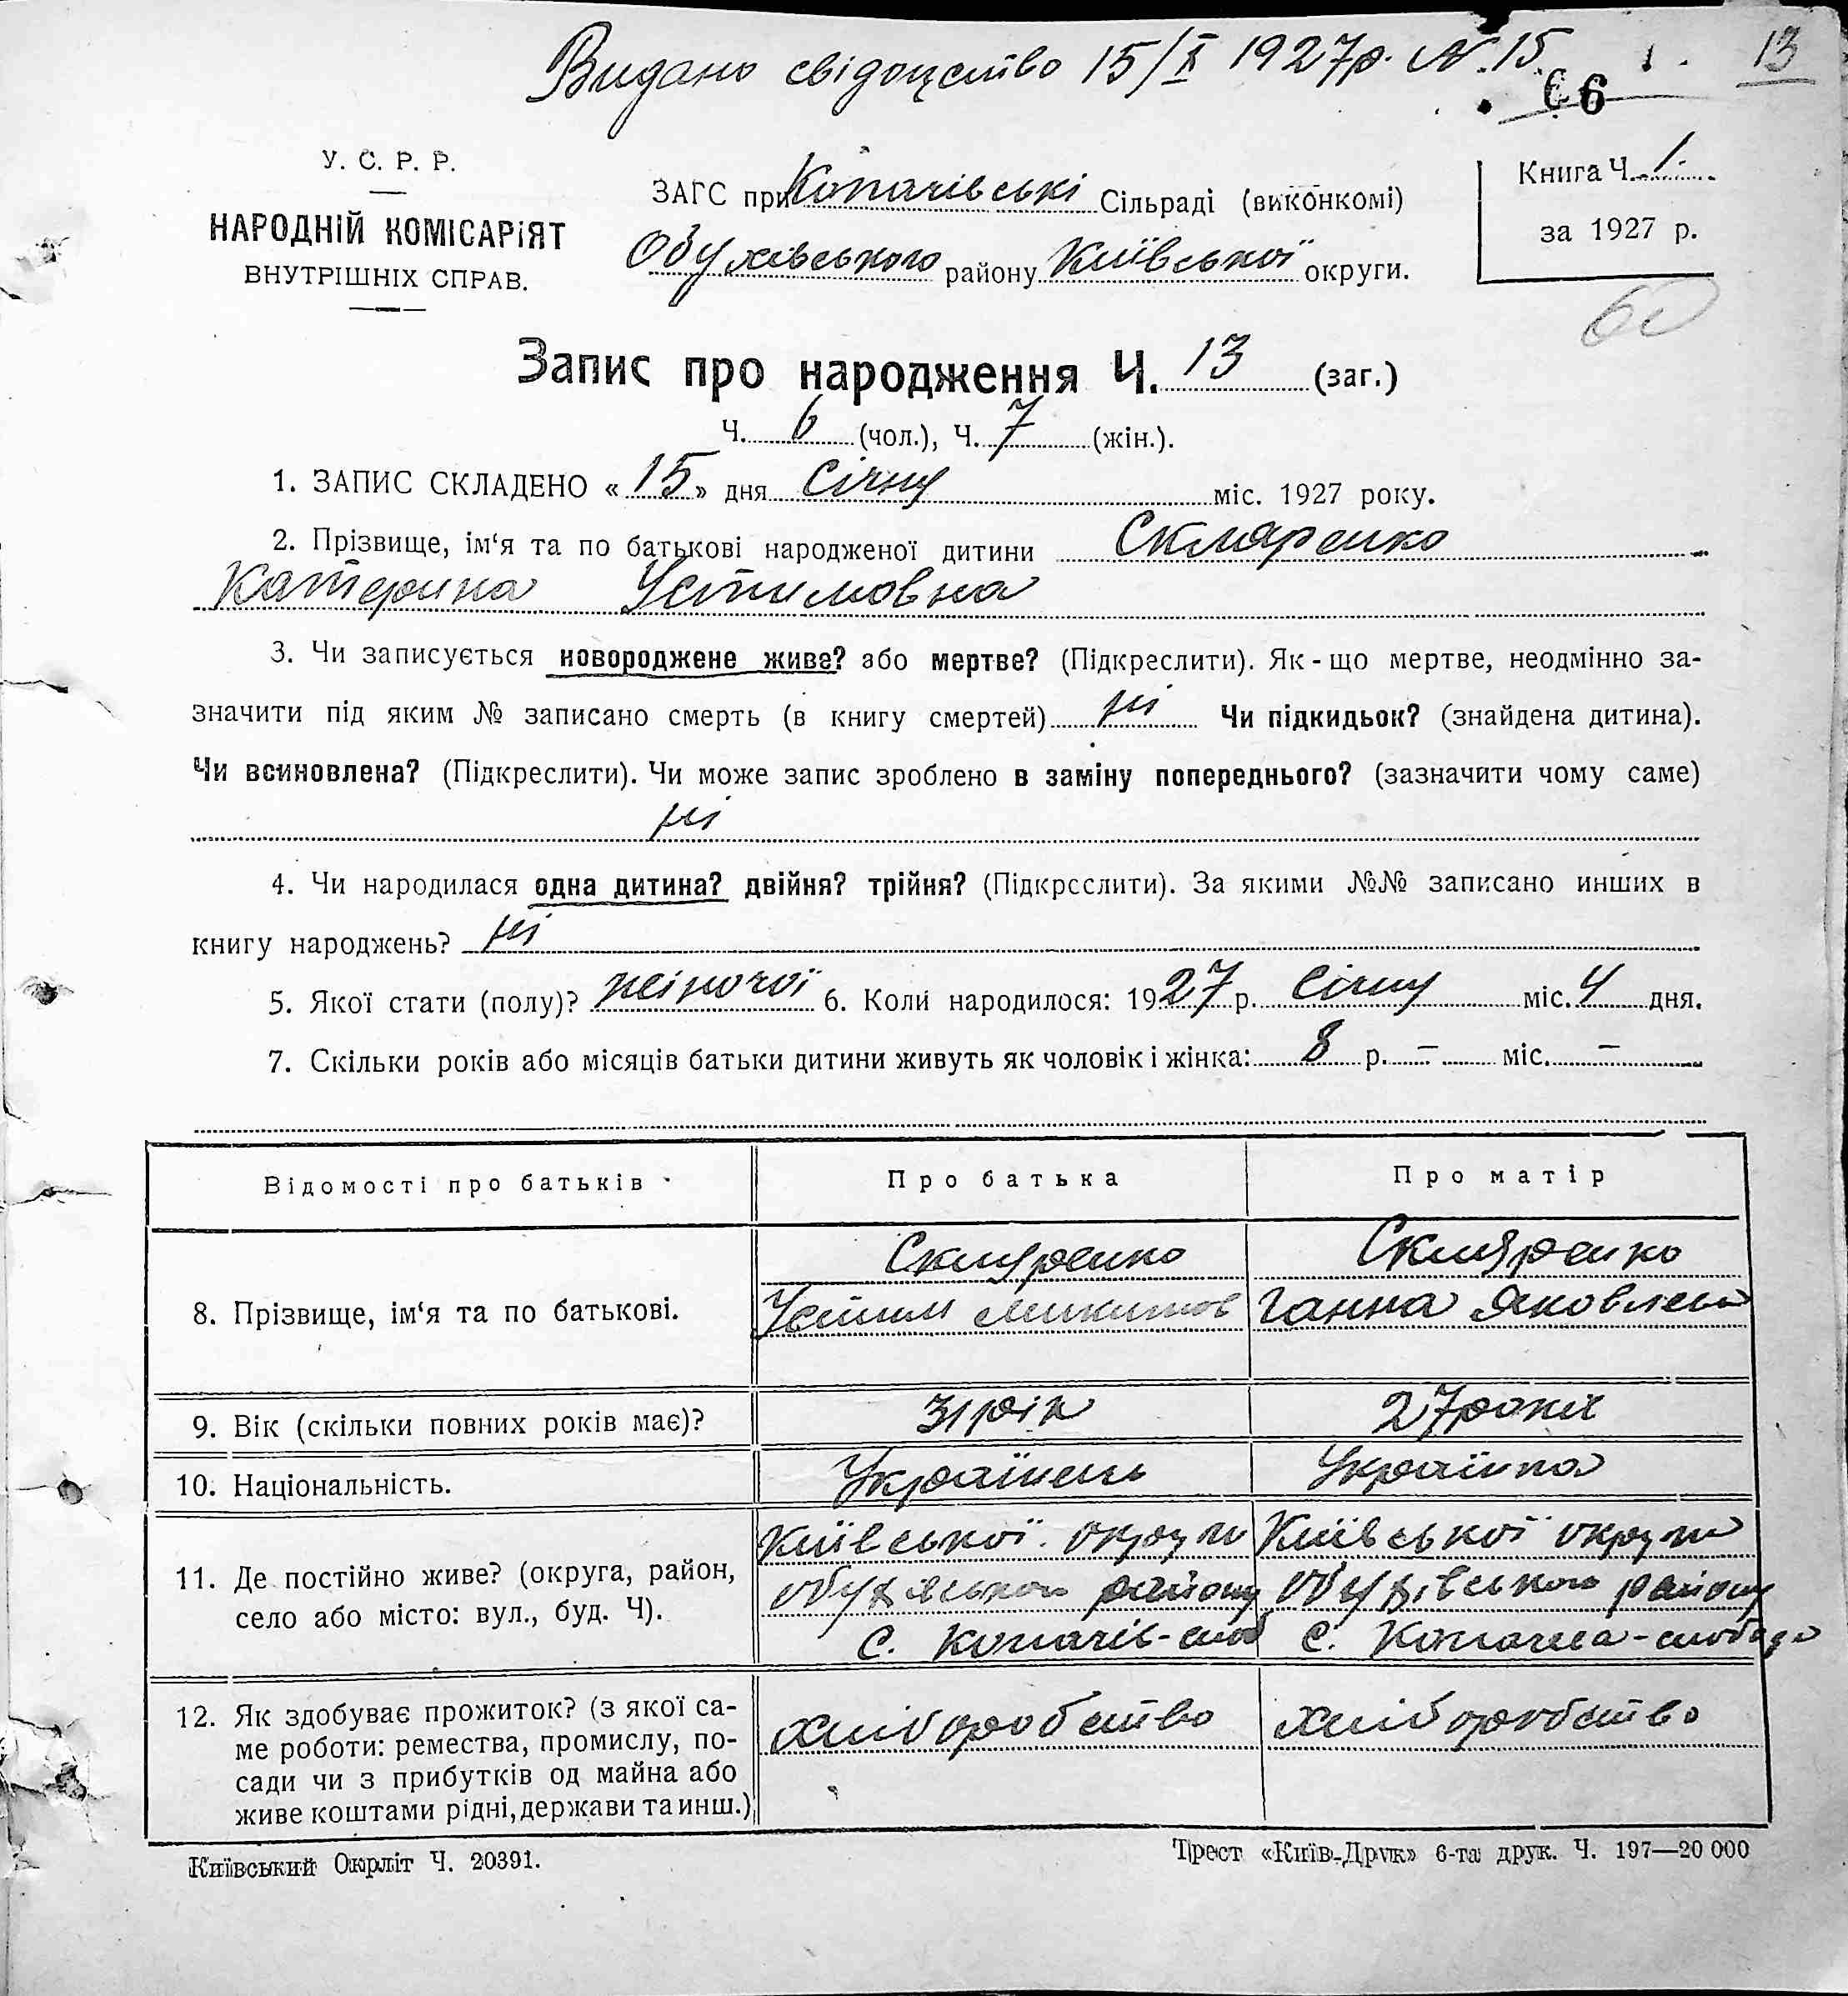 Видано свідоцтво 15/X 1927р. №15
13
66
У. С. Р. Р.
НАРОДНІЙ КОМІСАРІЯТ
ВНУТРІШНІХ СПРАВ.
ЗАГС при Копачівські Сільраді (виконкомі)
Обухівського району Київської округи.
Книга Ч. 1.
за 1927 р.
60
Запис про народження Ч. 13 (заг.)
Ч. 6 (чол.), Ч. 7 (жін.).
1. ЗАПИС СКЛАДЕНО « 15 » дня Січня міс. 1927 року.
2. Прізвище, ім‘я та по батькові народженої дитини Скляренко
Катерина Устимовна
3. Чи записується новороджене живе? або мертве? (Підкреслити). Як-що мертве, неодмінно за-
значити під яким № записано смерть (в книгу смертей) ні Чи підкидьок? (знайдена дитина).
Чи всиновлена? (Підкреслити). Чи може запис зроблено в заміну попереднього? (зазначити чому саме)
ні
4. Чи народилася одна дитина? двійня? трійня? (Підкреслити). За якими №№ записано инших в
книгу народжень? ні
5. Якої стати (полу)? жіночої 6. Коли народилося: 1927 р. Січня міс. 4 дня.
7. Скільки років або місяців батьки дитини живуть як чоловік і жінка: 8 р. — міс. —
Відомості про батьків
Про батька
Про матір
8. Прізвище, ім‘я та по батькові.
Скляренко
Устим Микитов
Скляренко
Ганна Яковлев
9. Вік (скільки повних років має)?
31 рік
27 років
10. Національність.
Українець
Українка
11. Де постійно живе? (округа, район,
село або місто: вул., буд. Ч).
Київської округи
Обухівського району
С. Копачів-слоб
Київської округи
Обухівського району
С. Копачива-слобода
12. Як здобуває прожиток? (з якої са-
ме роботи: ремества, промислу, по-
сади чи з прибутків од майна або
живе коштами рідні, держави та инш.)
хліборобство
хліборобство
Київський Окрліт Ч. 20391.
Трест «Київ-Друк» 6-та друк. Ч. 197—20 000